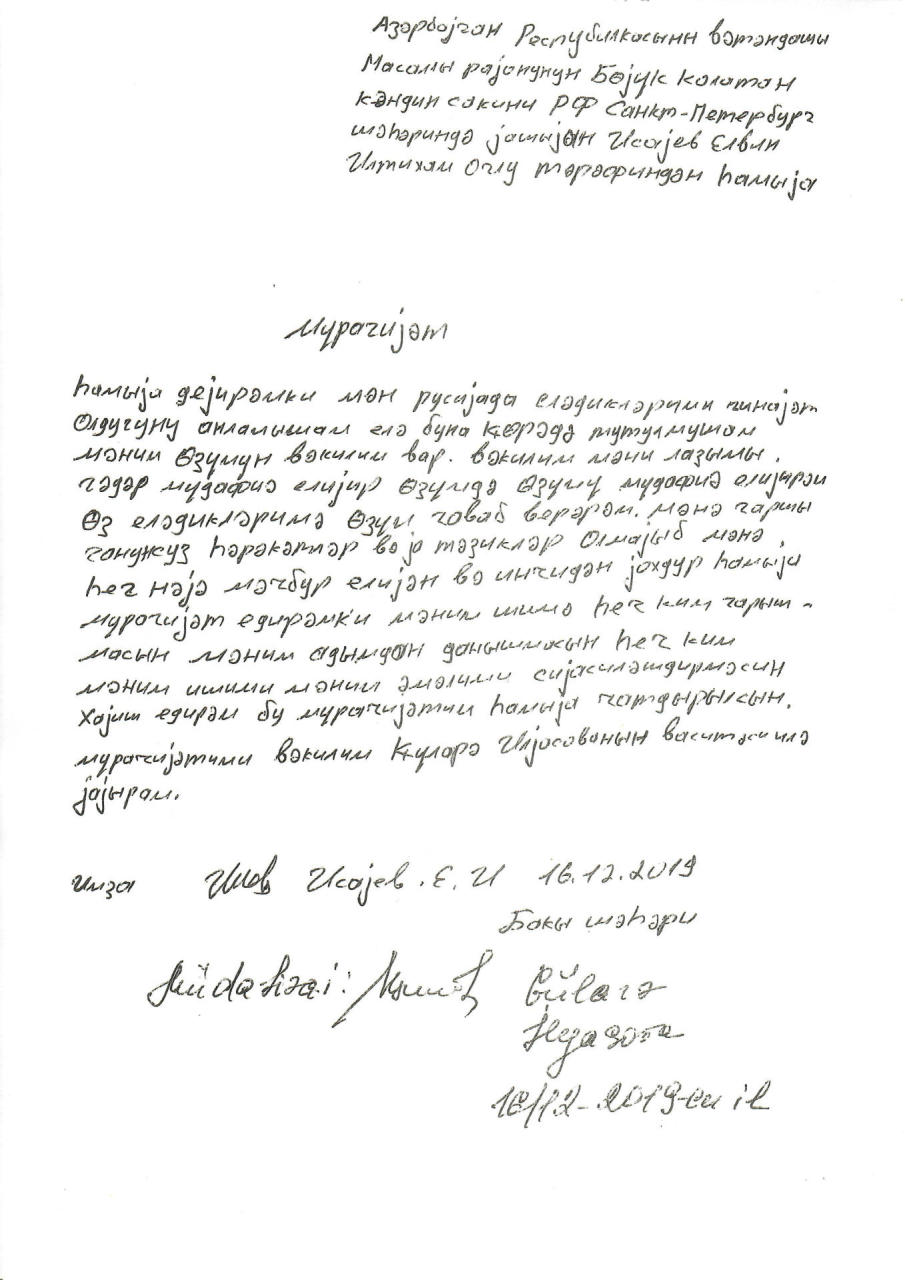 Азәрбојҹан Республикасынн вәтәндашы
Масаллы рајонунун Бөјук Колатан
кәндин сакини РФ Санкт-Петербург
шәһәриндә јашыјан Исајев Елвин
Илтихам Оглу тәрәфиндән һамыја
Мурачијәт
һамыја дејирәмки мән русијада еләдикләрими чинајәт
Олдугуну анламышам елә буна ҝөрәдә тутулмушам
мәним Өзумун вәкилим вар. вәкилим мәни лазымы
гәдәр мудафиә елијир Өзумдә Өзуму мудафиә елијирәм
Өз еләдикләримә Өзум говаб верәрәм. мәнә гаршы
ганужсуз һәрәкәтләр вә ја тәзикләр Олмајыб мәнә
һеч нәјә мәчбур елијән вә инчидән јохдур һамыја
мурочијәт едирәмки мәним ишимә һеч ким гарыш-
масын мәним адымдан данышмасын һеч ким
мәним ишими мәним әмәлими сијасиләшдирмәсин
Хајиш едирәм бу мурачијәтим һамыја чатдырылсын.
мурачијәтими вәкилим Ҝуларә Илјасованын васитәси илә
јајырам.
имза Исајев. Е. И 16.12.2019
Бакы шәһәри
Müdafiəçi: Gülarə
İlyasova
16/12-2019-cu il